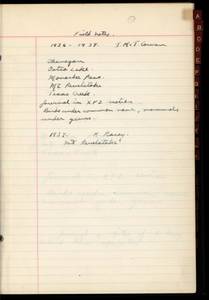 Field notes.
1936 - 1938. I. McT. Cowan
Okanagan
Tatla Lake.
Monashee Pass.
Mt Revelstoke
Texas Creek.
Journal in XYZ notes.
Birds under common name, mammals
under genus.
1938. K. Racey.
Mt Revelstoke
A
B
C
D
E
F